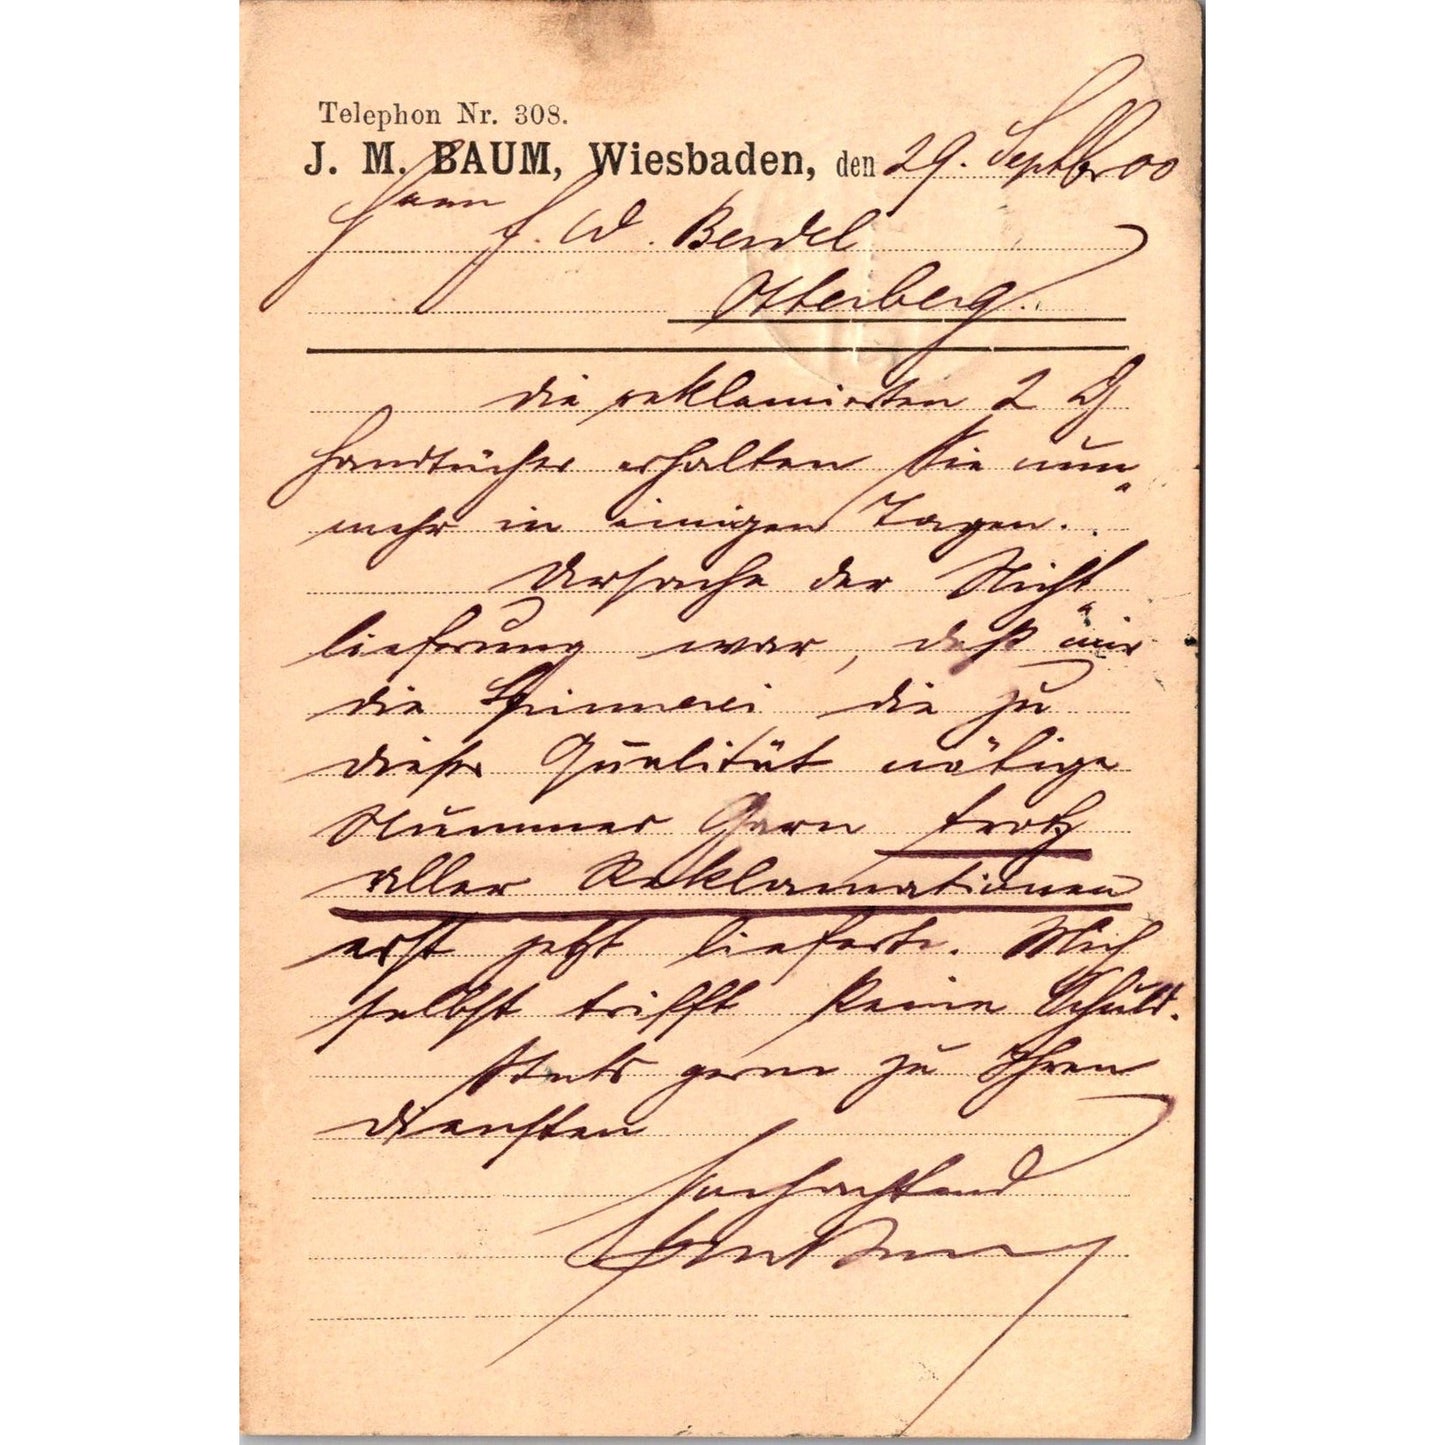 Telephon Nr. 308.
J. M. BAUM, Wiesbaden, den 29. Septbr 00
Herrn J. W. Berdel
Otterberg.
Die reklamierten 2 D
Handtücher erhalten Sie nun„
mehr in einigen Tagen.
Ursache der Nicht„
lieferung war, daß mir
die Spinnerei die zu
dieser Qualität nötige
Nummer Garn trotz
aller Reklamationen
erst jetzt lieferte. Mich
selbst trifft keine Schuld.
Stets gern zu Ihren
Diensten
hochachtend